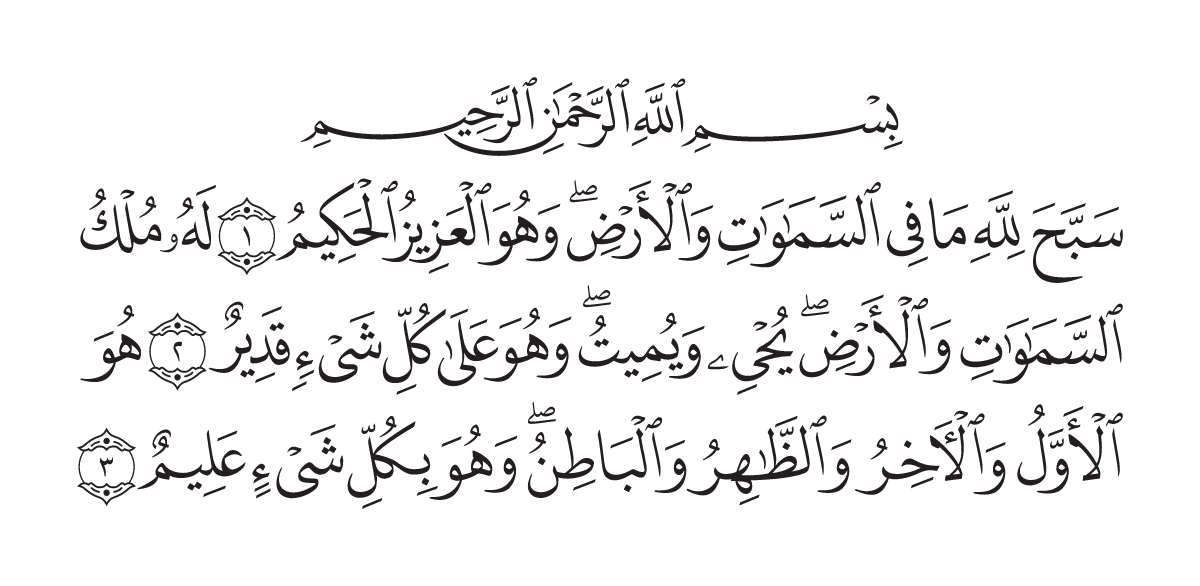 بِسْمِ ٱللَّهِ ٱلرَّحْمَٰنِ ٱلرَّحِيمِ
سَبَّحَ لِلَّهِ مَا فِى ٱلسَّمَٰوَٰتِ وَٱلْأَرْضِ ۖ وَهُوَ ٱلْعَزِيزُ ٱلْحَكِيمُ ١ لَهُۥ مُلْكُ
ٱلسَّمَٰوَٰتِ وَٱلْأَرْضِ ۖ يُحْىِۦ وَيُمِيتُ ۖ وَهُوَ عَلَىٰ كُلِّ شَىْءٍ قَدِيرٌ ٢ هُوَ
ٱلْأَوَّلُ وَٱلْأَخِرُ وَٱلظَّٰهِرُ وَٱلْبَاطِنُ ۖ وَهُوَ بِكُلِّ شَىْءٍ عَلِيمٌ ٣